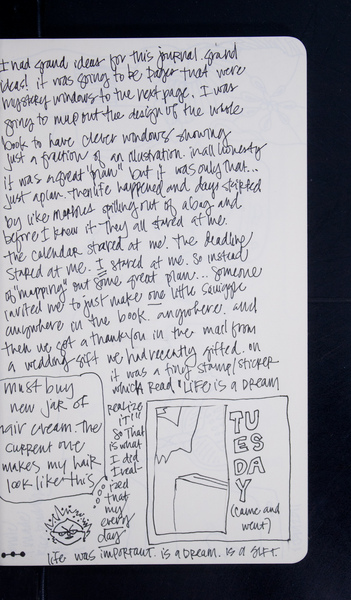 I had grand ideas for this journal. grand
ideas! it was going to be pages that were
mystery windows to the next page. I was
going to map out the design of the whole
book to have clever windows showing
just a fraction of an illustration. in all honesty
it was a great "plan" but it was only that...
just a plan. then life happened and days skipped
by like marbles spilling out of a bag and
before I knew it they all stared at me.
the calendar stared at me. the deadline
stared at me. I stared at me. so instead
of "mapping" out some great plan... someone
invited me to just make one little squiggle
anywhere in the book. anywhere. and
then we got a thank you in the mail from
a wedding gift we had recently gifted. on
it was a tiny stamp/sticker
which read "Life is a Dream
realize
it"!!
So that
is what
I did
I real-
ized
that
my
every
day
life was important. is a dream. is a gift.
must buy
new jar of
hair cream. the
current one
makes my hair
look like this
TU
ES
DA
Y
(came and
went)